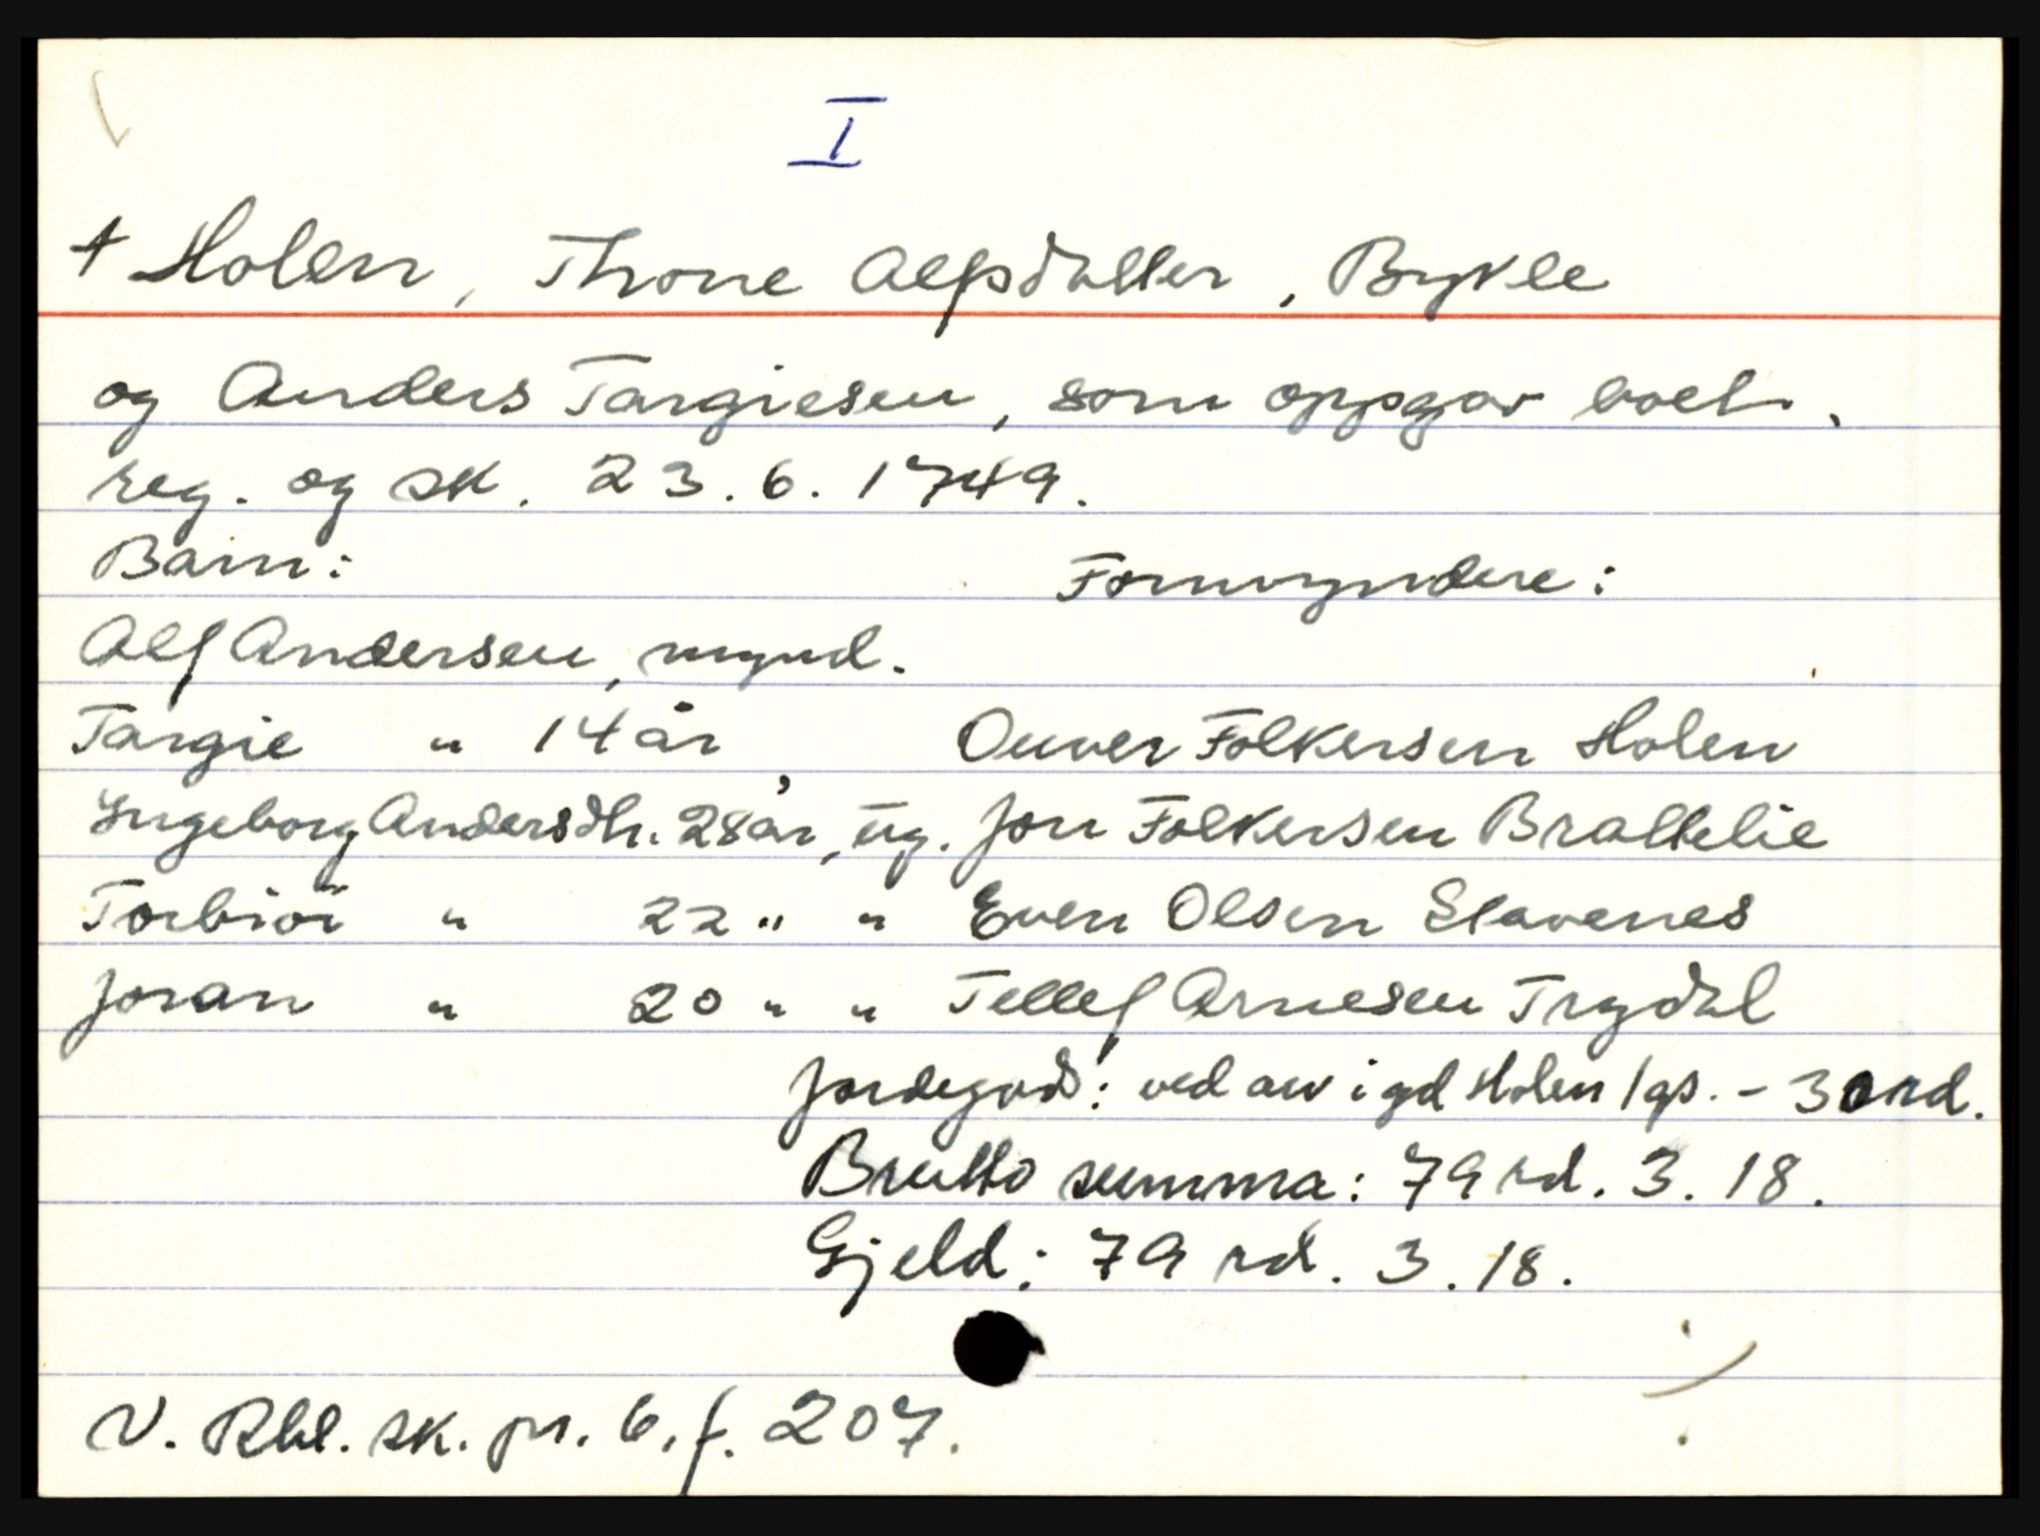 I
+ Holen, Throne Alfsdatter, Bykle
og Anders Targiesen, som oppgav boet.
reg. og sk. 23.6.1749.
Barn: Formyndere:
Alf Andersen, mynd.
Targie " 14 år, Ouver Folkersen Holen
Ingeborg Andersdtr. 28 år, ug. Jon Folkersen Brattelie
Torbiør " 22 " " Even Olsen Stavenes
Joran " 20 " " Tellef Arnesen Trydal
Jordegods: ved arv i gd Holen 1 gs. - 30 rd.
Brutto summa: 79 rd. 3. 18.
Gjeld: 79 rd. 3. 18.
V. Rbl. sk. pr. 6, f. 207.